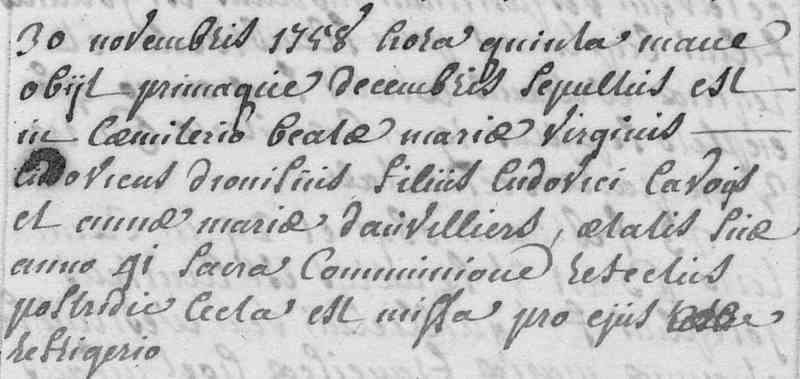 30 novembris 1758 hora quinta mane
obijt primaque decembris sepultus est
in Cœmiterio beatæ mariæ virginis
Ludovicus dionisius filius Ludovici Cavoÿs
et annæ mariæ dauvilliers, ætatis suæ
anno 41 sacra Communione refectus
postridie lecta est missa pro ejus
refrigerio